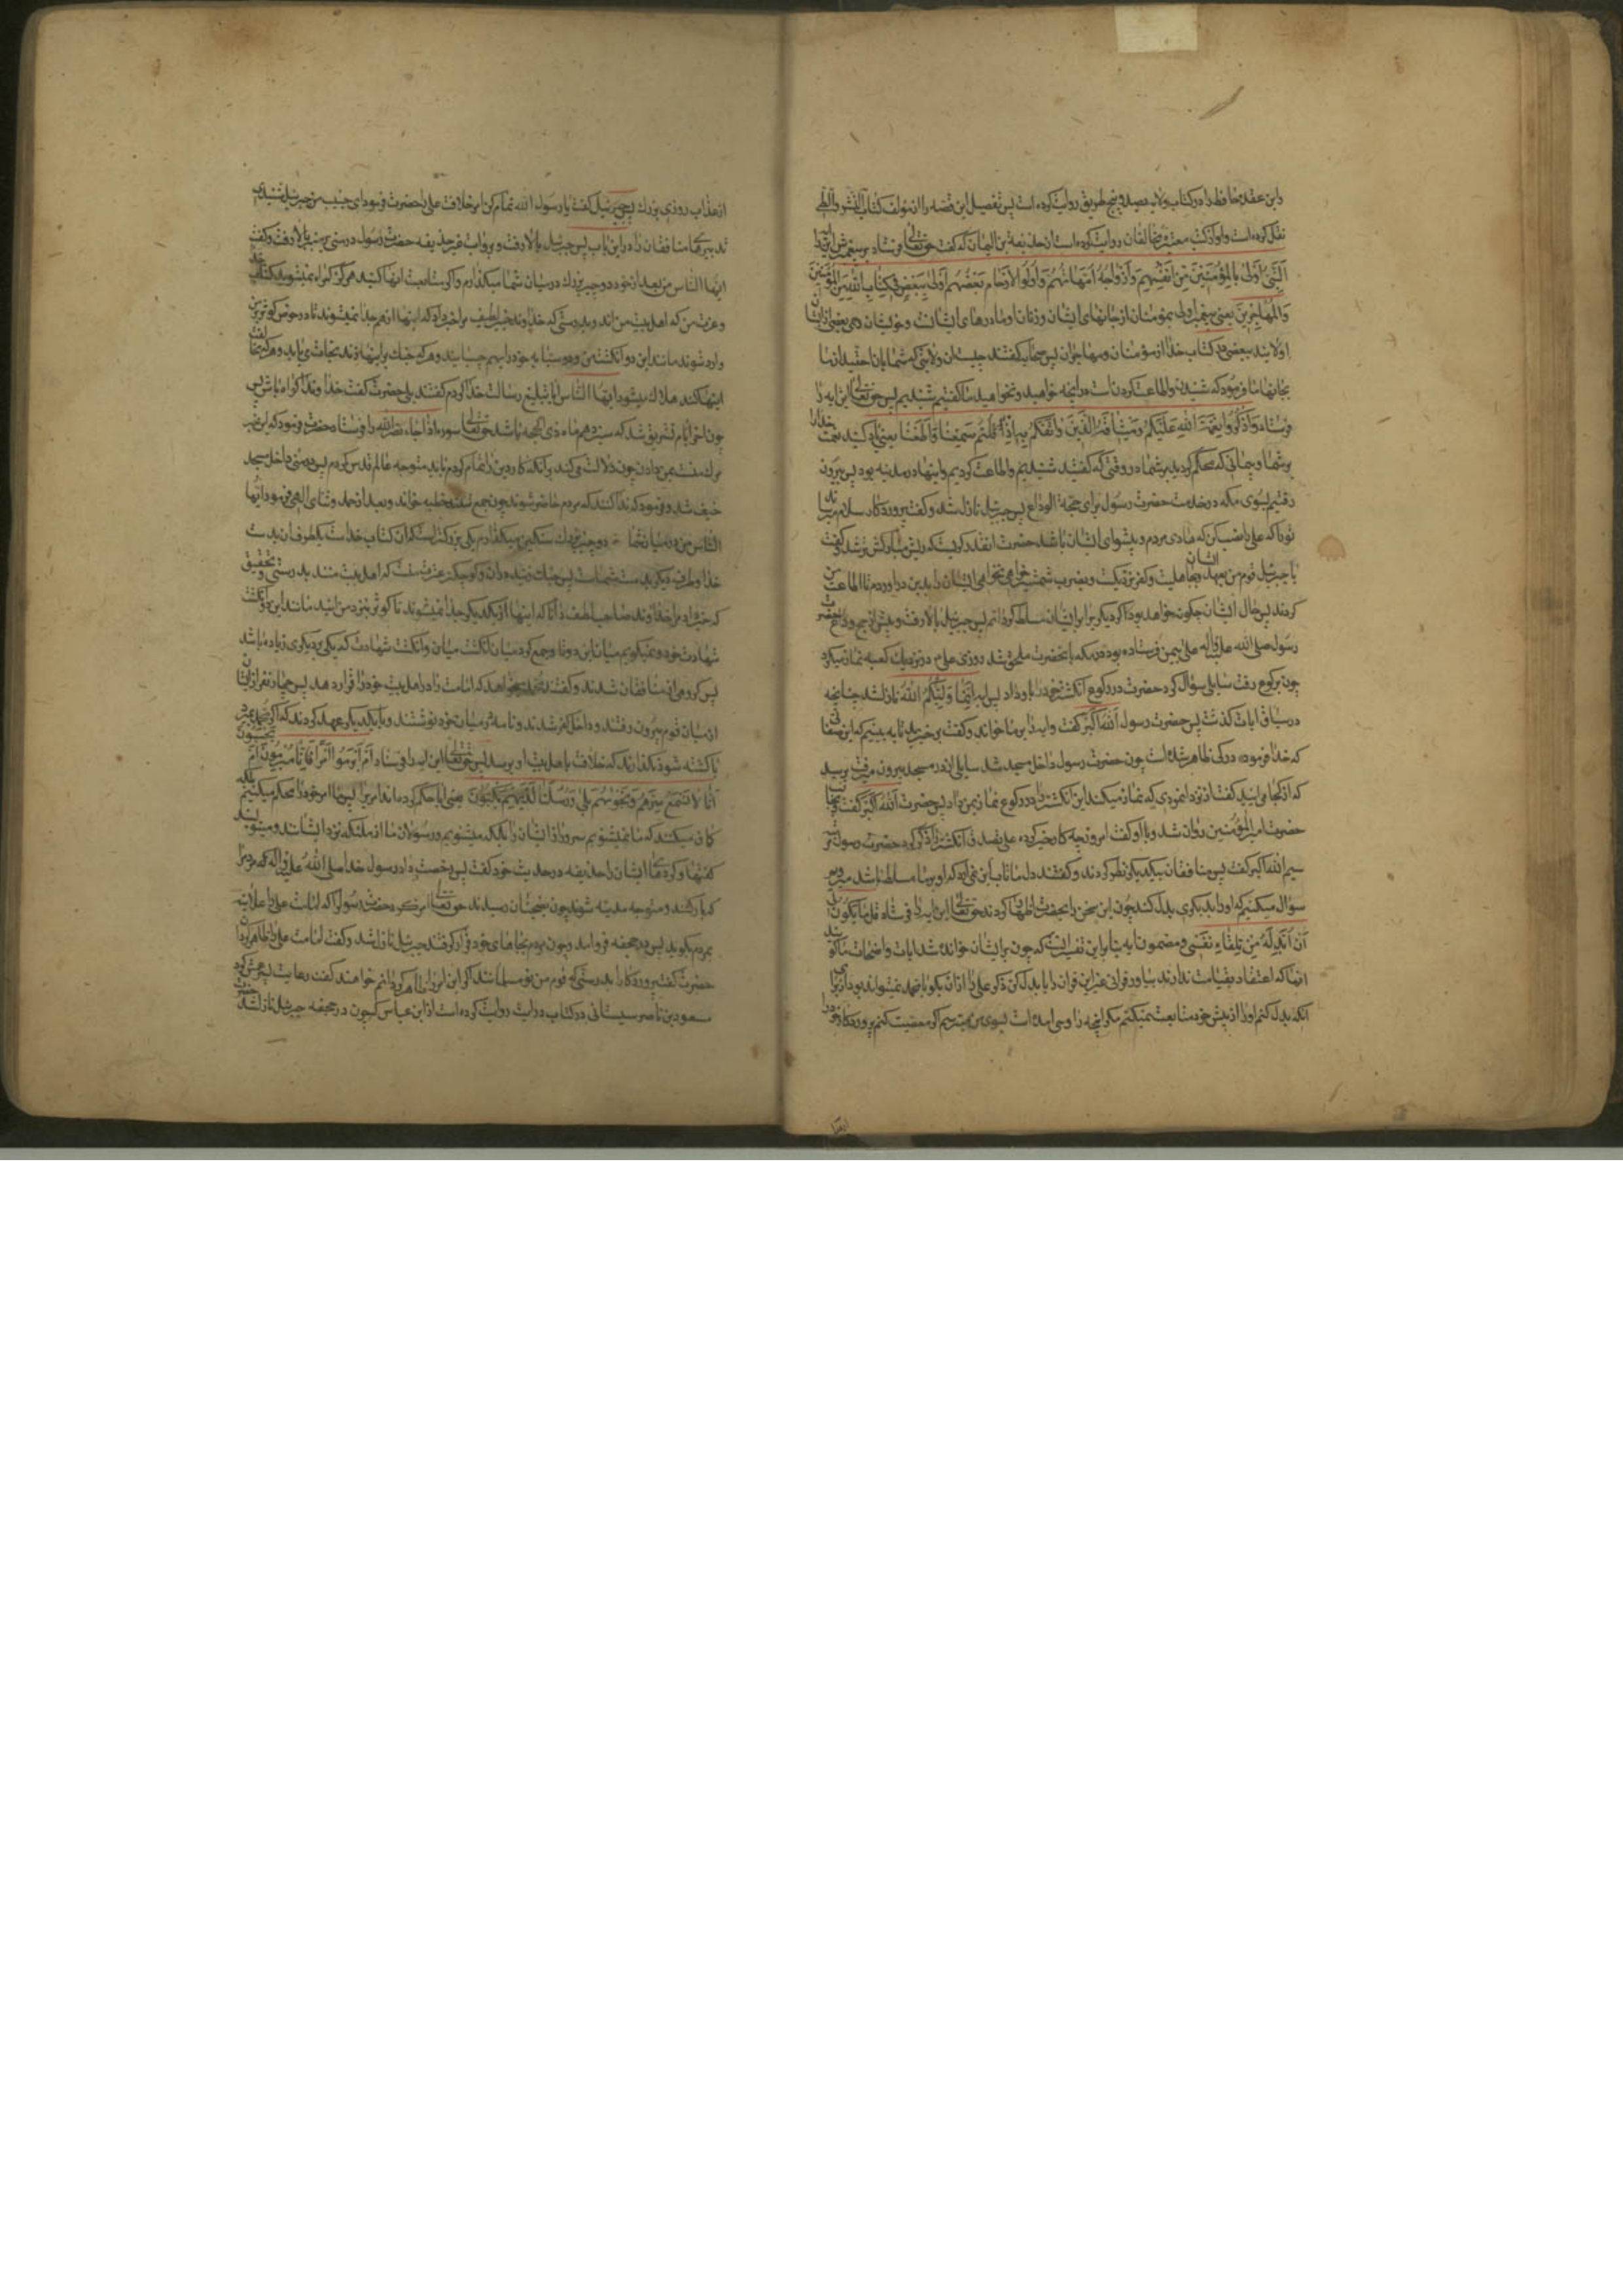 وابن عقده حافظ در کتاب ولایه بصد و پنج طریق روایت کرده است پس تفصیل این قصه را از مؤلف کتاب النشر والطی
نقل کرده است و او از کتب معتبره مخالفان روایت کرده است از حذیفة بن الیمان که گفت حق تعالی فرستاد بر پیغمبرش این آیه را
اَلنَّبِیُّ اَوْلیٰ بِالْمُؤْمِنینَ مِنْ اَنْفُسِهِمْ وَاَزْواجُهُ اُمَّهاتُهُمْ وَاُولُوا الْاَرْحامِ بَعْضُهُمْ اَوْلیٰ بِبَعْضٍ فی کِتابِ اللّهِ مِنَ الْمُؤْمِنینَ
وَالْمُهاجِرینَ یعنی پیغمبر اولی بمؤمنان از جانهای ایشان و زنان او مادرهای ایشانند و خویشان بعضی از ایشان
اولایند ببعضی در کتاب خدا از مؤمنان و مهاجران پس صحابه گفتند چیست آن ولایتی که شما بآن احقید از ما
بجانهای ما فرمود که شنیدن و اطاعت کردنست در آنچه خواهید و نخواهید ما گفتیم شنیدیم پس حق تعالی این آیه را
فرستاد وَاذْکُرُوا نِعْمَةَ اللّهِ عَلَیْکُمْ وَمیثاقَهُ الَّذی واثَقَکُمْ بِهِ اِذْ قُلْتُمْ سَمِعْنا وَاَطَعْنا یعنی یاد کنید نعمت خدا را
بر شما و پیمانی که محکم کردید بر شما در وقتی که گفتید شنیدیم و اطاعت کردیم و اینها در مدینه بود پس بیرون
رفتیم بسوی مکه در خدمت حضرت رسول برای حجة الوداع پس جبرئیل نازل شد و گفت پروردگارت سلام میرساند
تو را که علی را نصب کن که هادی مردم و پیشوای ایشان باشد حضرت آنقدر گریست که ریش مبارکش تر شد و گفت
یا جبرئیل قوم من عهد ایشان بجاهلیت و کفر نزدیکست و بضرب شمشیر خواهی نخواهی ایشان را بدین درآوردم تا اطاعت من
کردند پس حال ایشان چگونه خواهد بود اگر دیگری را بر ایشان مسلط گردانم پس جبرئیل بالا رفت و پیش از حجة وداع حضرت
رسول صلی الله علیه وآله علی را بیمن فرستاده بود در مکه بآنحضرت ملحق شد روزی علی در نزدیک کعبه نماز میکرد
چون برکوع رفت سایلی سؤال کرد حضرت در رکوع انگشتر خود را باو داد پس آیه اِنَّما وَلِیُّکُمُ اللّهُ نازل شد چنانچه
در سیاق آیات گذشت پس حضرت رسول اللّه اکبر گفت و آیه را بر ما خواند و گفت برخیزید تا به بینیم که این صفتها
که خدا فرموده در کی ظاهر شده است چون حضرت رسول داخل مسجد شد سایلی از در مسجد بیرون میرفت پرسید
که از کجا میایی گفت از نزد این مردی که نماز میکند این انگشتر را در رکوع نماز بمن داد پس حضرت اللّه اکبر گفت و بجانب
حضرت امیر المؤمنین روان شد و با او گفت امروز چه کار خیر کرده علی تصدق انگشتر را ذکر کرد حضرت رسول مرتبه
سیم اللّه اکبر گفت پس منافقان بیکدیگر نظر کردند و گفتند دل ما تاب این نمی‌آورد که او بر ما مسلط باشد میرویم
سؤال میکنیم که او را بدیگری بدل کند چون این سخن را بحضرت اظهار کردند حق تعالی این آیه را فرستاد قُلْ ما یَکُونُ لی
اَنْ اُبَدِّلَهُ مِنْ تِلْقاءِ نَفْسی و مضمون آیه بنابر این تفسیر آنست که چون بر ایشان خوانده شد آیات واضحات ما گویند
آنها که اعتقاد بقیامت ندارند بیاور قرآنی غیر این قرآن را یا بدل کن ذکر علی را از آن بگو یا محمد نمیتواند بود از برای
آنکه بدل کنم او را از پیش خود متابعت نمیکنم مگر آنچه را وحی آمده است بسوی من میترسم اگر معصیت کنم پروردگار خود را
از عذاب روزی بزرك پس جبرئیل گفت یا رسول الله تمام کن امر خلافت علی را حضرت فرمود ای حبیب من جبرئیل شنیدی
تدبیرهای منافقان را در این باب پس جبرئیل بالا رفت و بروایت غیر حذیفه حضرت رسول در منی بر منبر بالا رفت و گفت
ایها الناس من بعد از خود دو چیز بزرك در میان شما میگذارم و اگر متابعت آنها کنید هرگز گمراه نمیشوید کتاب خدا
و عترت من که اهل بیت من‌اند و بدرستی که خداوند خبیر لطیف مرا خبر داد که اینها از هم جدا نمیشوند تا در حوض کوثر بر من
وارد شوند مانند این دو انگشت من و دو سبابه خود را بهم چسبانید و هر که چنك بر اینها زند نجات می‌یابد و هر که مخالفت
اینها کند هلاك میشود ایها الناس آیا تبلیغ رسالت خدا کردم گفتند بلی حضرت گفت خداوندا گواه باش پس
چون آخر ایام تشریق شد که سیزدهم ماه ذی الحجه باشد حق تعالی سوره اذا جاء نصرالله را فرستاد حضرت فرمود که این خبر
مرك منست بمن دادن چون دلالت می‌کند بر آنکه کار دین را تمام کردم باید متوجه عالم قدس گردم پس در منی داخل مسجد
خیف شد و فرمود که ندا کنند که مردم حاضر شوند چون جمع شدند خطبه خواند و بعد از حمد و ثنای الهی فرمود ایها
الناس من در میان شما دو چیز بزرك سنگین میگذارم یکی بزرگتر است که آن کتاب خداست یکطرف آن بدست
خدا و طرف دیگر بدست شماست پس چنك زنید در آن و کوچکتر عترت منست که اهل بیت منند بدرستی و تحقیق
که خبر داد مرا خداوند صاحب لطف دانا که اینها از یکدیگر جدا نمیشوند تا کوثر بنزد من آیند مانند این دو انگشت
شهادت خود و نمیگویم مانند این دو تا و جمع کرد میان انگشت میان و انگشت شهادت که یکی بر دیگری زیاده باشد
پس گروهی از منافقان شدند و گفتند محمد میخواهد که امامت را در اهل بیت خود را قرار دهد پس چهار نفر از ایشان
از میان قوم بیرون رفتند و داخل کعبه شدند و نامه در میان خود نوشتند و با یکدیگر عهد کردند که اگر محمد بمیرد
یا کشته شود نگذارند که خلافت باهل بیت او برسد پس حق تعالی این آیه را فرستاد اَمْ اَبْرَمُوا اَمْرًا فَاِنّا مُبْرِمُونَ اَمْ یَحْسَبُونَ
اَنّا لا نَسْمَعُ سِرَّهُمْ وَنَجْویهُمْ بَلیٰ وَرُسُلُنا لَدَیْهِمْ یَکْتُبُونَ یعنی آیا محکم کرده‌اند امری را پس ما امر خود را محکم میکنیم بلکه
گمان میکنند که ما نمیشنویم سر و راز ایشان را بلکه میشنویم و رسولان ما از ملئکه نزد ایشانند و مینویسند
گفتها و کردهای ایشان را حذیفه در حدیث خود گفت پس رخصت داد رسول خدا صلی الله علیه وآله که مردم را
که بار کنند و متوجه مدینه شوند چون بضجنان رسیدند حق تعالی امر کرد حضرت رسول را که امامت علی را علانیه
بمردم بگوید پس در جحفه فرود آمد و چون مردم بجاهای خود قرار گرفتند جبرئیل نازل شد و گفت امامت علی را ظاهر گردان
حضرت گفت پروردگارا بدرستی که قوم من نو مسلمانند اگر این امر را ظاهر گردانم خواهند گفت رعایت پسر عمش کرد
مسعود بن ناصر سیستانی در کتاب درایت روایت کرده است از ابن عباس که چون در جحفه جبرئیل نازل شد حضرت